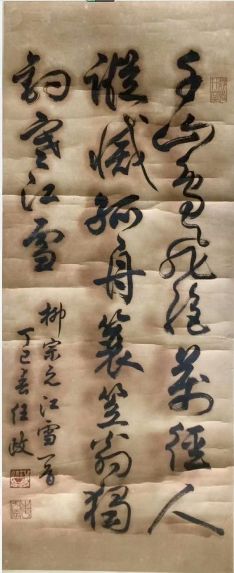 千山鸟飛绝萬径人
踪灭孤舟蓑笠翁獨
釣寒江雪
柳宗元江雪一首
丁巳春任政